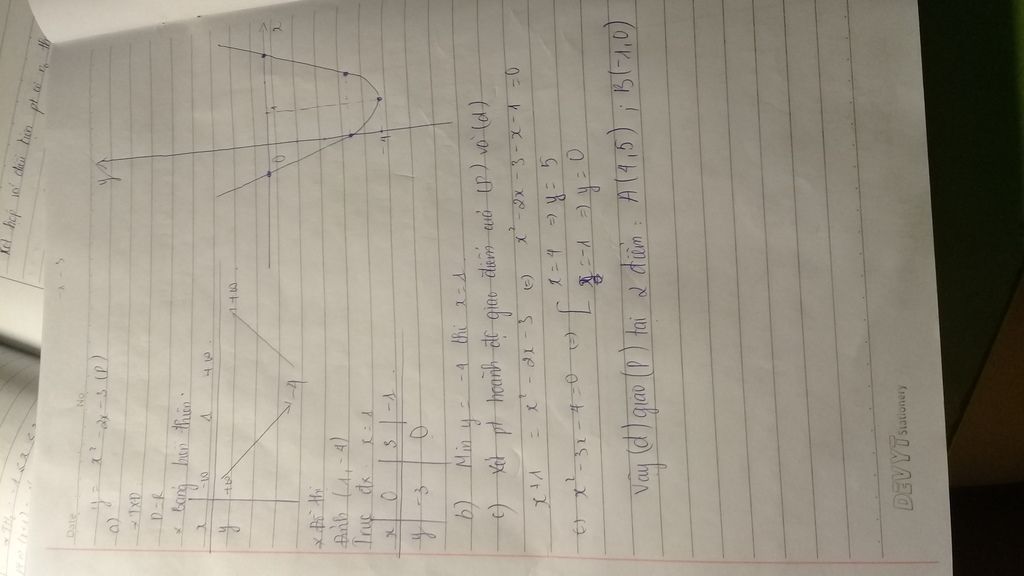 Date No
y = x² - 2x - 3 (P)
a)
→ TXĐ
D = R
* bảng biến thiên:
x -∞ 1 +∞
y +∞ -4 +∞
* Đồ thị
Đỉnh (1, -4)
Trục đx x = 1
x 0 3 -1
y -3 0
y
0 1 x
-4
b) Min y = -4 thì x = 1
c) Xét pt hoành độ giao điểm của (P) và (d)
x+1 = x² - 2x - 3 (=) x² - 2x - 3 - x - 1 = 0
(=) x² - 3x - 4 = 0 (=) [ x = 4 => y = 5
x = -1 => y = 0
Vậy (d) giao (P) tại 2 điểm : A(4,5) ; B(-1,0)
DEVYT Stationery